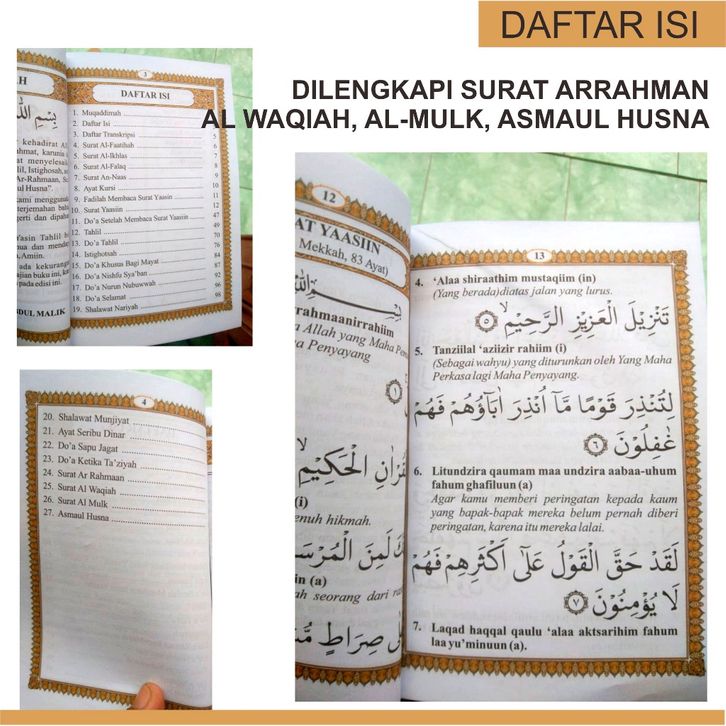 DAFTAR ISI
DILENGKAPI SURAT ARRAHMAN
AL WAQIAH, AL-MULK, ASMAUL HUSNA
AH
kehadirat
ahmat, karunia
menyelesai
lil, Istighosah,
Ar-Rahmaan,
Husna".
kami menggun
terjemahan
gerti dan dipah
Yaasin Tahlil
dan mendat
, Amiin.
ada kekurang
ajian buku ini,
pada edisi ini.
BDUL MALIK
3
DAFTAR ISI
1. Muqaddimah
2. Daftar Isi
3. Daftar Transkripsi 5
4. Surat Al-Faatihah 6
5. Surat Al-Ikhlas 7
6. Surat Al-Falaq 8
7. Surat An-Naas 9
8. Ayat Kursi 10
9. Fadilah Membaca Surat Yaasin 11
10. Surat Yaasiin 12
11. Do'a Setelah Membaca Surat Yaasiin 47
12. Tahlil 49
13. Do'a Tahlil 70
14. Istighotsah 76
15. Do'a Khusus Bagi Mayat 84
16. Do'a Nishfu Sya'ban 87
17. Do'a Nurun Nubuwwah 92
18. Do'a Selamat 96
19. Shalawat Nariyah 98
4
20. Shalawat Munjiyat
21. Ayat Seribu Dinar
22. Do'a Sapu Jagat
23. Do'a Ketika Ta'ziyah
24. Surat Ar Rahmaan
25. Surat Al Waqiah
26. Surat Al Mulk
27. Asmaul Husna
12
AT YAASIIN
Mekkah, 83 Ayat)
rahmaanirrahiim
Allah yang Maha Pem
Maha Penyayang
١
الْحَكِيْمِ
(i)
enuh hikmah.
لَمِنَ الْمُرْسَ
in (a)
ah seorang dari ra
صِرَاطٍ
13
4. 'Alaa shiraathim mustaqiim (in)
(Yang berada)diatas jalan yang lurus.
تَنْزِيْلَ الْعَزِيْزِ الرَّحِيْمِ ٥
5. Tanziilal 'aziizir rahiim (i)
(Sebagai wahyu) yang diturunkan oleh Yang Maha
Perkasa lagi Maha Penyayang.
لِتُنْذِرَ قَوْمًا مَّآ اُنْذِرَ اٰبَاۤؤُهُمْ فَهُمْ
غٰفِلُوْنَ ٦
6. Litundzira qaumam maa undzira aabaa-uhum
fahum ghafiluun (a)
Agar kamu memberi peringatan kepada kaum
yang bapak-bapak mereka belum pernah diberi
peringatan, karena itu mereka lalai.
لَقَدْ حَقَّ الْقَوْلُ عَلٰٓى اَكْثَرِهِمْ فَهُمْ
لَا يُؤْمِنُوْنَ ٧
7. Laqad haqqal qaulu 'alaa aktsarihim fahum
laa yu'minuun (a).